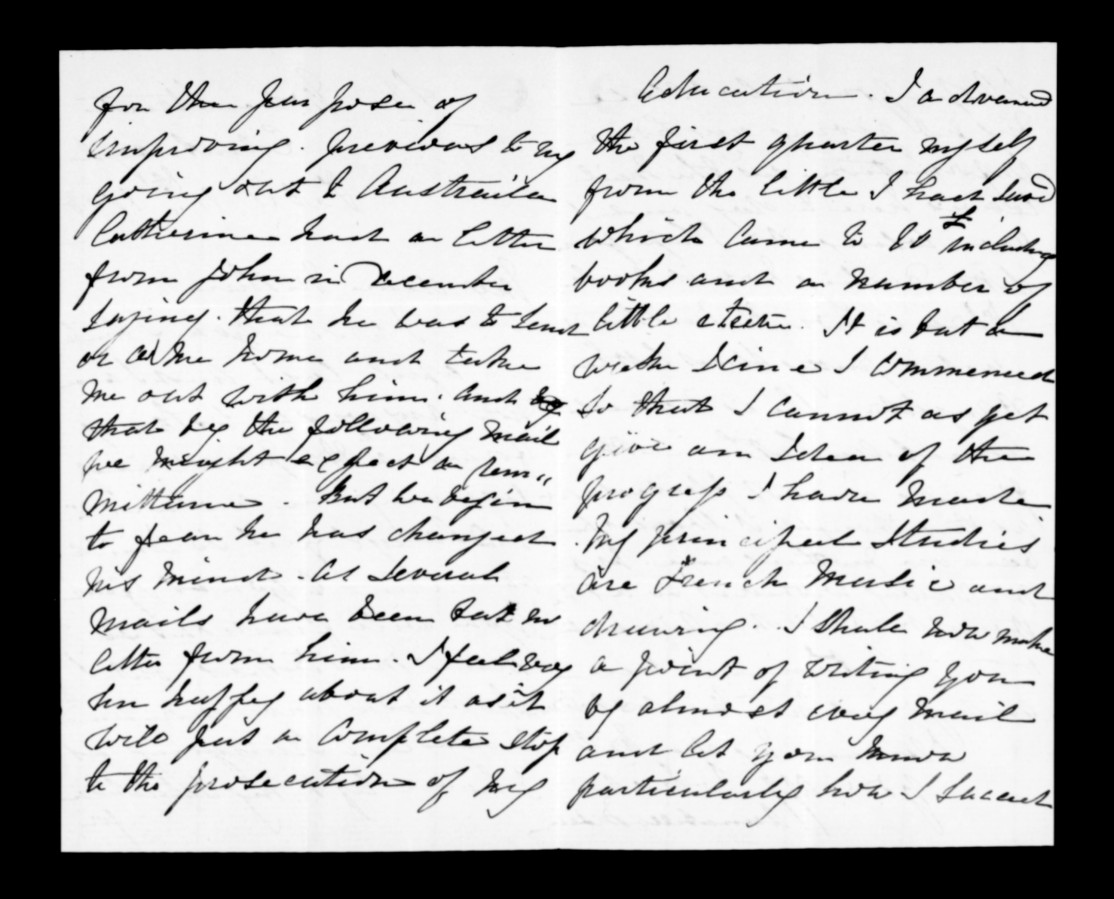 for the purpose of
improving. previous to my
going out to Austrailia
Catherine had a letter
from John in December
saying. that he was to send
or come home and take
me out with him. and
that by the following mail
we might expect a rem"
mittance. But we begin
to fear he has changed
his mind. as several
mails have been but no
letter from him. I feel very
un happy about it as it
will put a complete stop
to the prosecution of my
Education. I advanced
the first quarter myself
from the little I had saved
which came to £ including
books and a number of
little etcetra. It is but a
week since I commenced
so that I cannot as yet
give an Idea of the
progress I have made
My principal Studies
are French Music and
drawing. I shall now make
a point of writing you
by almost every mail
and let you know
particularly how I succeed